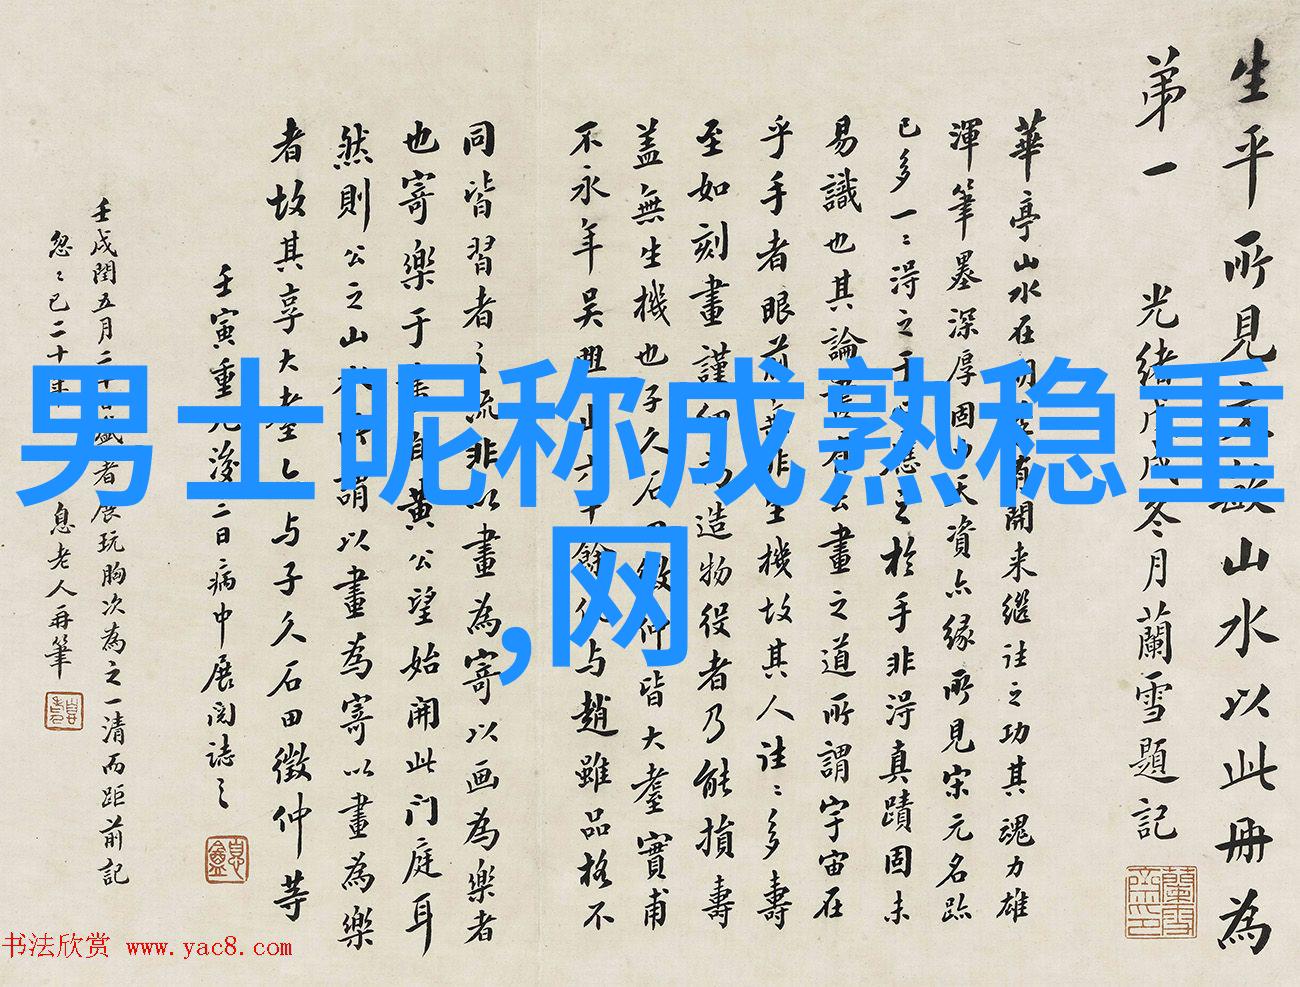 生平所見文敏山水以此冊為
第一 光緒戊戌冬月蘭雪題記
華亭山水在明 開来繼往之功其魂力雄
渾筆墨深厚固 天資亦緣所見宋元名跡
已多一〻得之于 之於手非得真蹟固未
易識也其論 畫之道所謂宇宙在
乎手者眼前無非生機故其人往〻多壽
至如刻畫謹細 造物役者乃能損壽
蓋無生機也子久石田徵仲皆大耋實甫
不永年吳興 六十餘 与趙雖品格不
同皆習者之流非以畫為寄以画為樂者
也寄樂于 自黄公望始開此门庭耳
然則公之山 謂以畫為寄以畫為樂
者故其享大耋乙与子久石田徵仲等
壬寅重九後二日病中展閲誌之
壬戌閏五月二十 展玩胸次為之一清而距前記
忽〻已二十年 息老人再筆
男士昵称成熟稳重
,网
书法欣赏 www.yac8.com